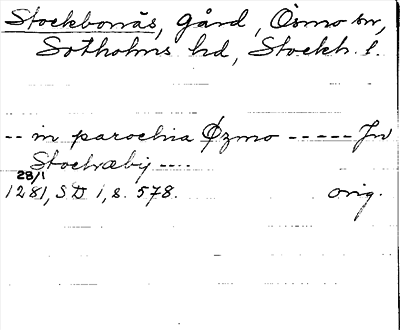 Stockbonäs, gård, Ösmo sn,
Sotholms hd, Stockh. l.
-- in parochia Øzmo ----- Jn
Stochæby ----
28/1
1281, SD 1, s. 578. orig.